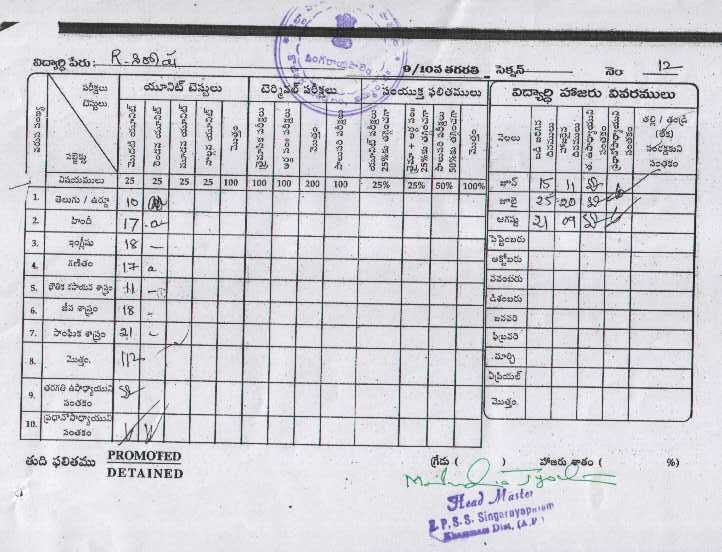 విద్యార్థి పేరు: R. శిరోష 9/10వ తరగతి సెక్షన్ నెం 12
వరుస సంఖ్య పరీక్షలు టెస్టులు సబ్జెక్టు యూనిట్ టెస్టులు టెర్మినల్ పరీక్షలు సంయుక్త ఫలితములు
మొదటి యూనిట్ రెండవ యూనిట్ మూడవ యూనిట్ నాల్గవ యూనిట్ మొత్తం మొత్తం 25% 25% 50% మొత్తం
విషయములు 25 25 25 25 100 100 100 200 100 25% 25% 50% 100%
1. తెలుగు / ఉర్దూ 10
2. హిందీ 17 a
3. ఇంగ్లీషు 18 -
4. గణితం 17 a
5. భౌతిక రసాయన శాస్త్రం 11 -
6. జీవ శాస్త్రం 18 -
7. సాంఘిక శాస్త్రం 21 -
8. మొత్తం 112
9. తరగతి ఉపాధ్యాయుని సంతకం
10. ప్రధానోపాధ్యాయుని సంతకం
విద్యార్థి హాజరు వివరములు
నెలలు పని జరిగిన దినములు హాజరైన దినములు తల్లి / తండ్రి (లేక) సంరక్షకుని సంతకం
జూన్ 15 11
జూలై 25 20
ఆగష్టు 21 09
సెప్టెంబరు
అక్టోబరు
నవంబరు
డిశంబరు
జనవరి
ఫిబ్రవరి
మార్చి
ఏప్రియల్
మొత్తం
తుది ఫలితము PROMOTED
DETAINED
గ్రేడు ( ) హాజరు శాతం ( %)
Head Master
Z.P.S.S. Singarayapalem
Khammam Dist, (A.P)